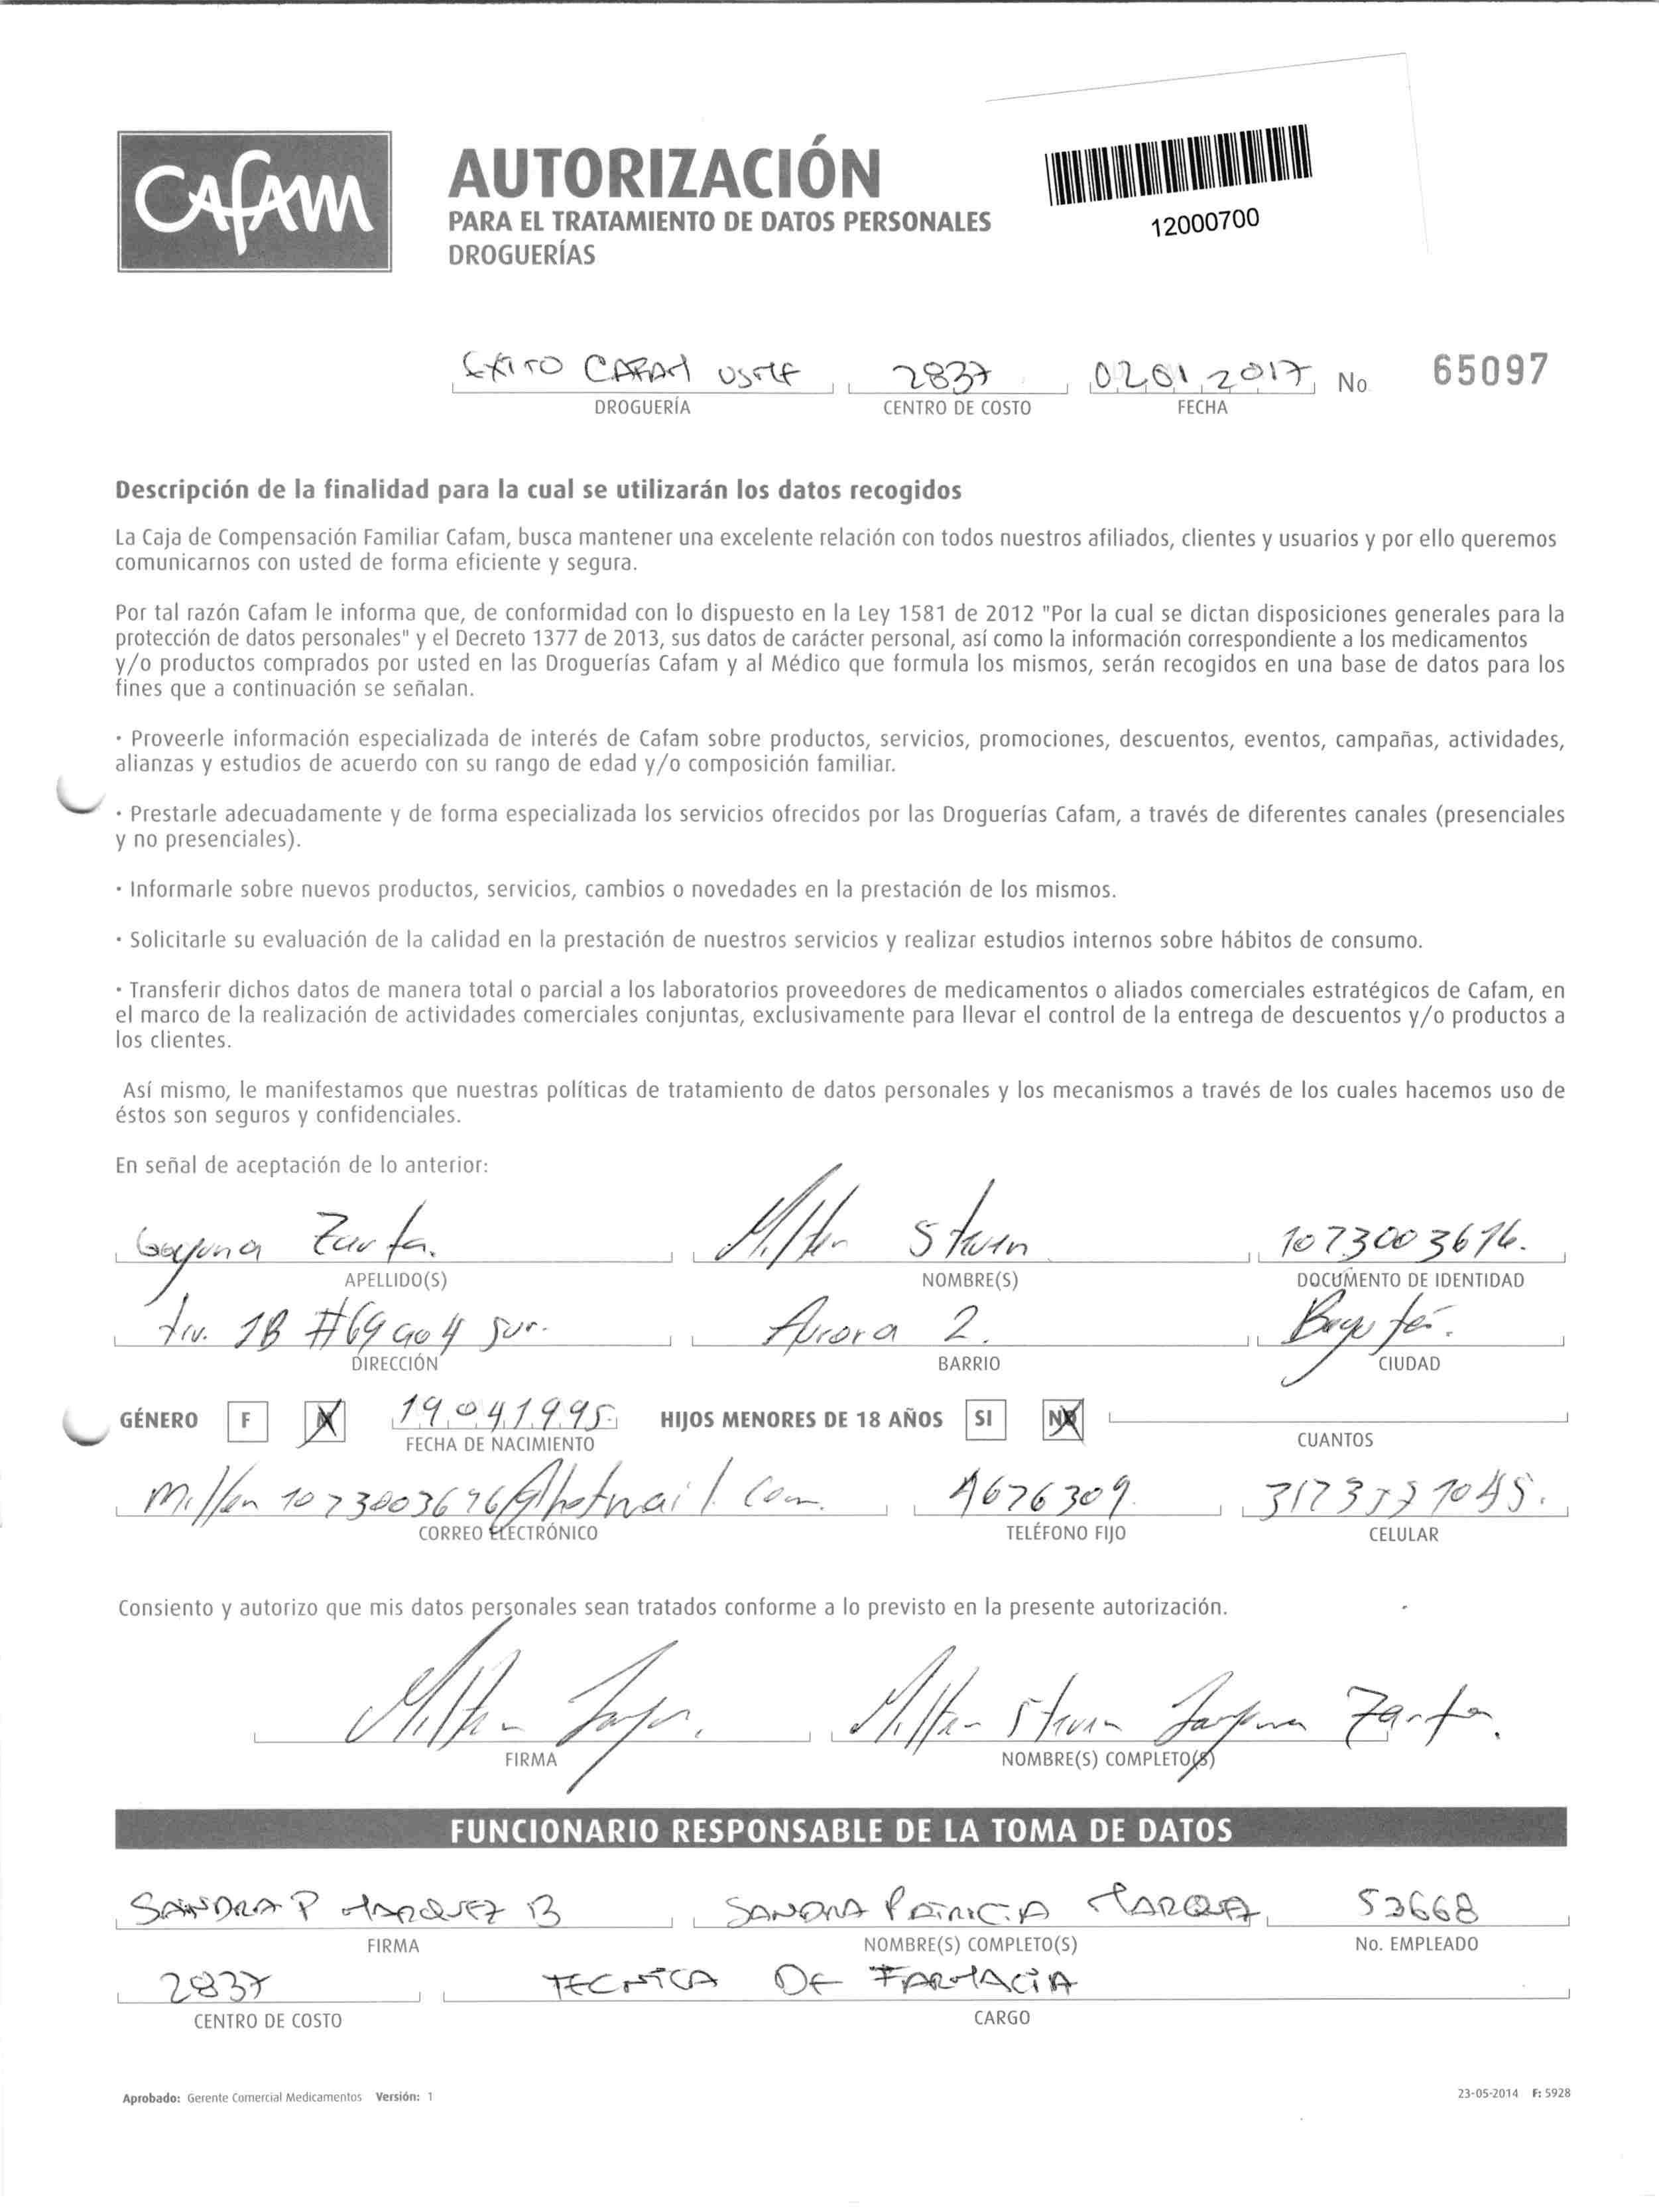 CAfAM
AUTORIZACIÓN
PARA EL TRATAMIENTO DE DATOS PERSONALES
DROGUERÍAS
12000700
EXITO CAFAM USME 2837 02 01 2017 No 65097
DROGUERÍA CENTRO DE COSTO FECHA
Descripción de la finalidad para la cual se utilizarán los datos recogidos
La Caja de Compensación Familiar Cafam, busca mantener una excelente relación con todos nuestros afiliados, clientes y usuarios y por ello queremos
comunicarnos con usted de forma eficiente y segura.
Por tal razón Cafam le informa que, de conformidad con lo dispuesto en la Ley 1581 de 2012 "Por la cual se dictan disposiciones generales para la
protección de datos personales" y el Decreto 1377 de 2013, sus datos de carácter personal, así como la información correspondiente a los medicamentos
y/o productos comprados por usted en las Droguerías Cafam y al Médico que formula los mismos, serán recogidos en una base de datos para los
fines que a continuación se señalan.
· Proveerle información especializada de interés de Cafam sobre productos, servicios, promociones, descuentos, eventos, campañas, actividades,
alianzas y estudios de acuerdo con su rango de edad y/o composición familiar.
· Prestarle adecuadamente y de forma especializada los servicios ofrecidos por las Droguerías Cafam, a través de diferentes canales (presenciales
y no presenciales).
· Informarle sobre nuevos productos, servicios, cambios o novedades en la prestación de los mismos.
· Solicitarle su evaluación de la calidad en la prestación de nuestros servicios y realizar estudios internos sobre hábitos de consumo.
· Transferir dichos datos de manera total o parcial a los laboratorios proveedores de medicamentos o aliados comerciales estratégicos de Cafam, en
el marco de la realización de actividades comerciales conjuntas, exclusivamente para llevar el control de la entrega de descuentos y/o productos a
los clientes.
Así mismo, le manifestamos que nuestras políticas de tratamiento de datos personales y los mecanismos a través de los cuales hacemos uso de
éstos son seguros y confidenciales.
En señal de aceptación de lo anterior:
Zarta. Milton Stivin
APELLIDO(S) NOMBRE(S) DOCUMENTO DE IDENTIDAD
trv. 1B #69 a04 sur. Aurora 2. Bogotá.
DIRECCIÓN BARRIO CIUDAD
GÉNERO F M 19 04 1995 HIJOS MENORES DE 18 AÑOS SI NO
FECHA DE NACIMIENTO CUANTOS
4676309
CORREO ELECTRÓNICO TELÉFONO FIJO CELULAR
Consiento y autorizo que mis datos personales sean tratados conforme a lo previsto en la presente autorización.
Milton Milton Stivin Zarta.
FIRMA NOMBRE(S) COMPLETO(S)
FUNCIONARIO RESPONSABLE DE LA TOMA DE DATOS
SANDRA P MARQUEZ B SANDRA PATRICIA MARQUEZ 53668
FIRMA NOMBRE(S) COMPLETO(S) No. EMPLEADO
2837 TECNICA DE FARMACIA
CENTRO DE COSTO CARGO
Aprobado: Gerente Comercial Medicamentos Versión: 1 23-05-2014 F: 5928